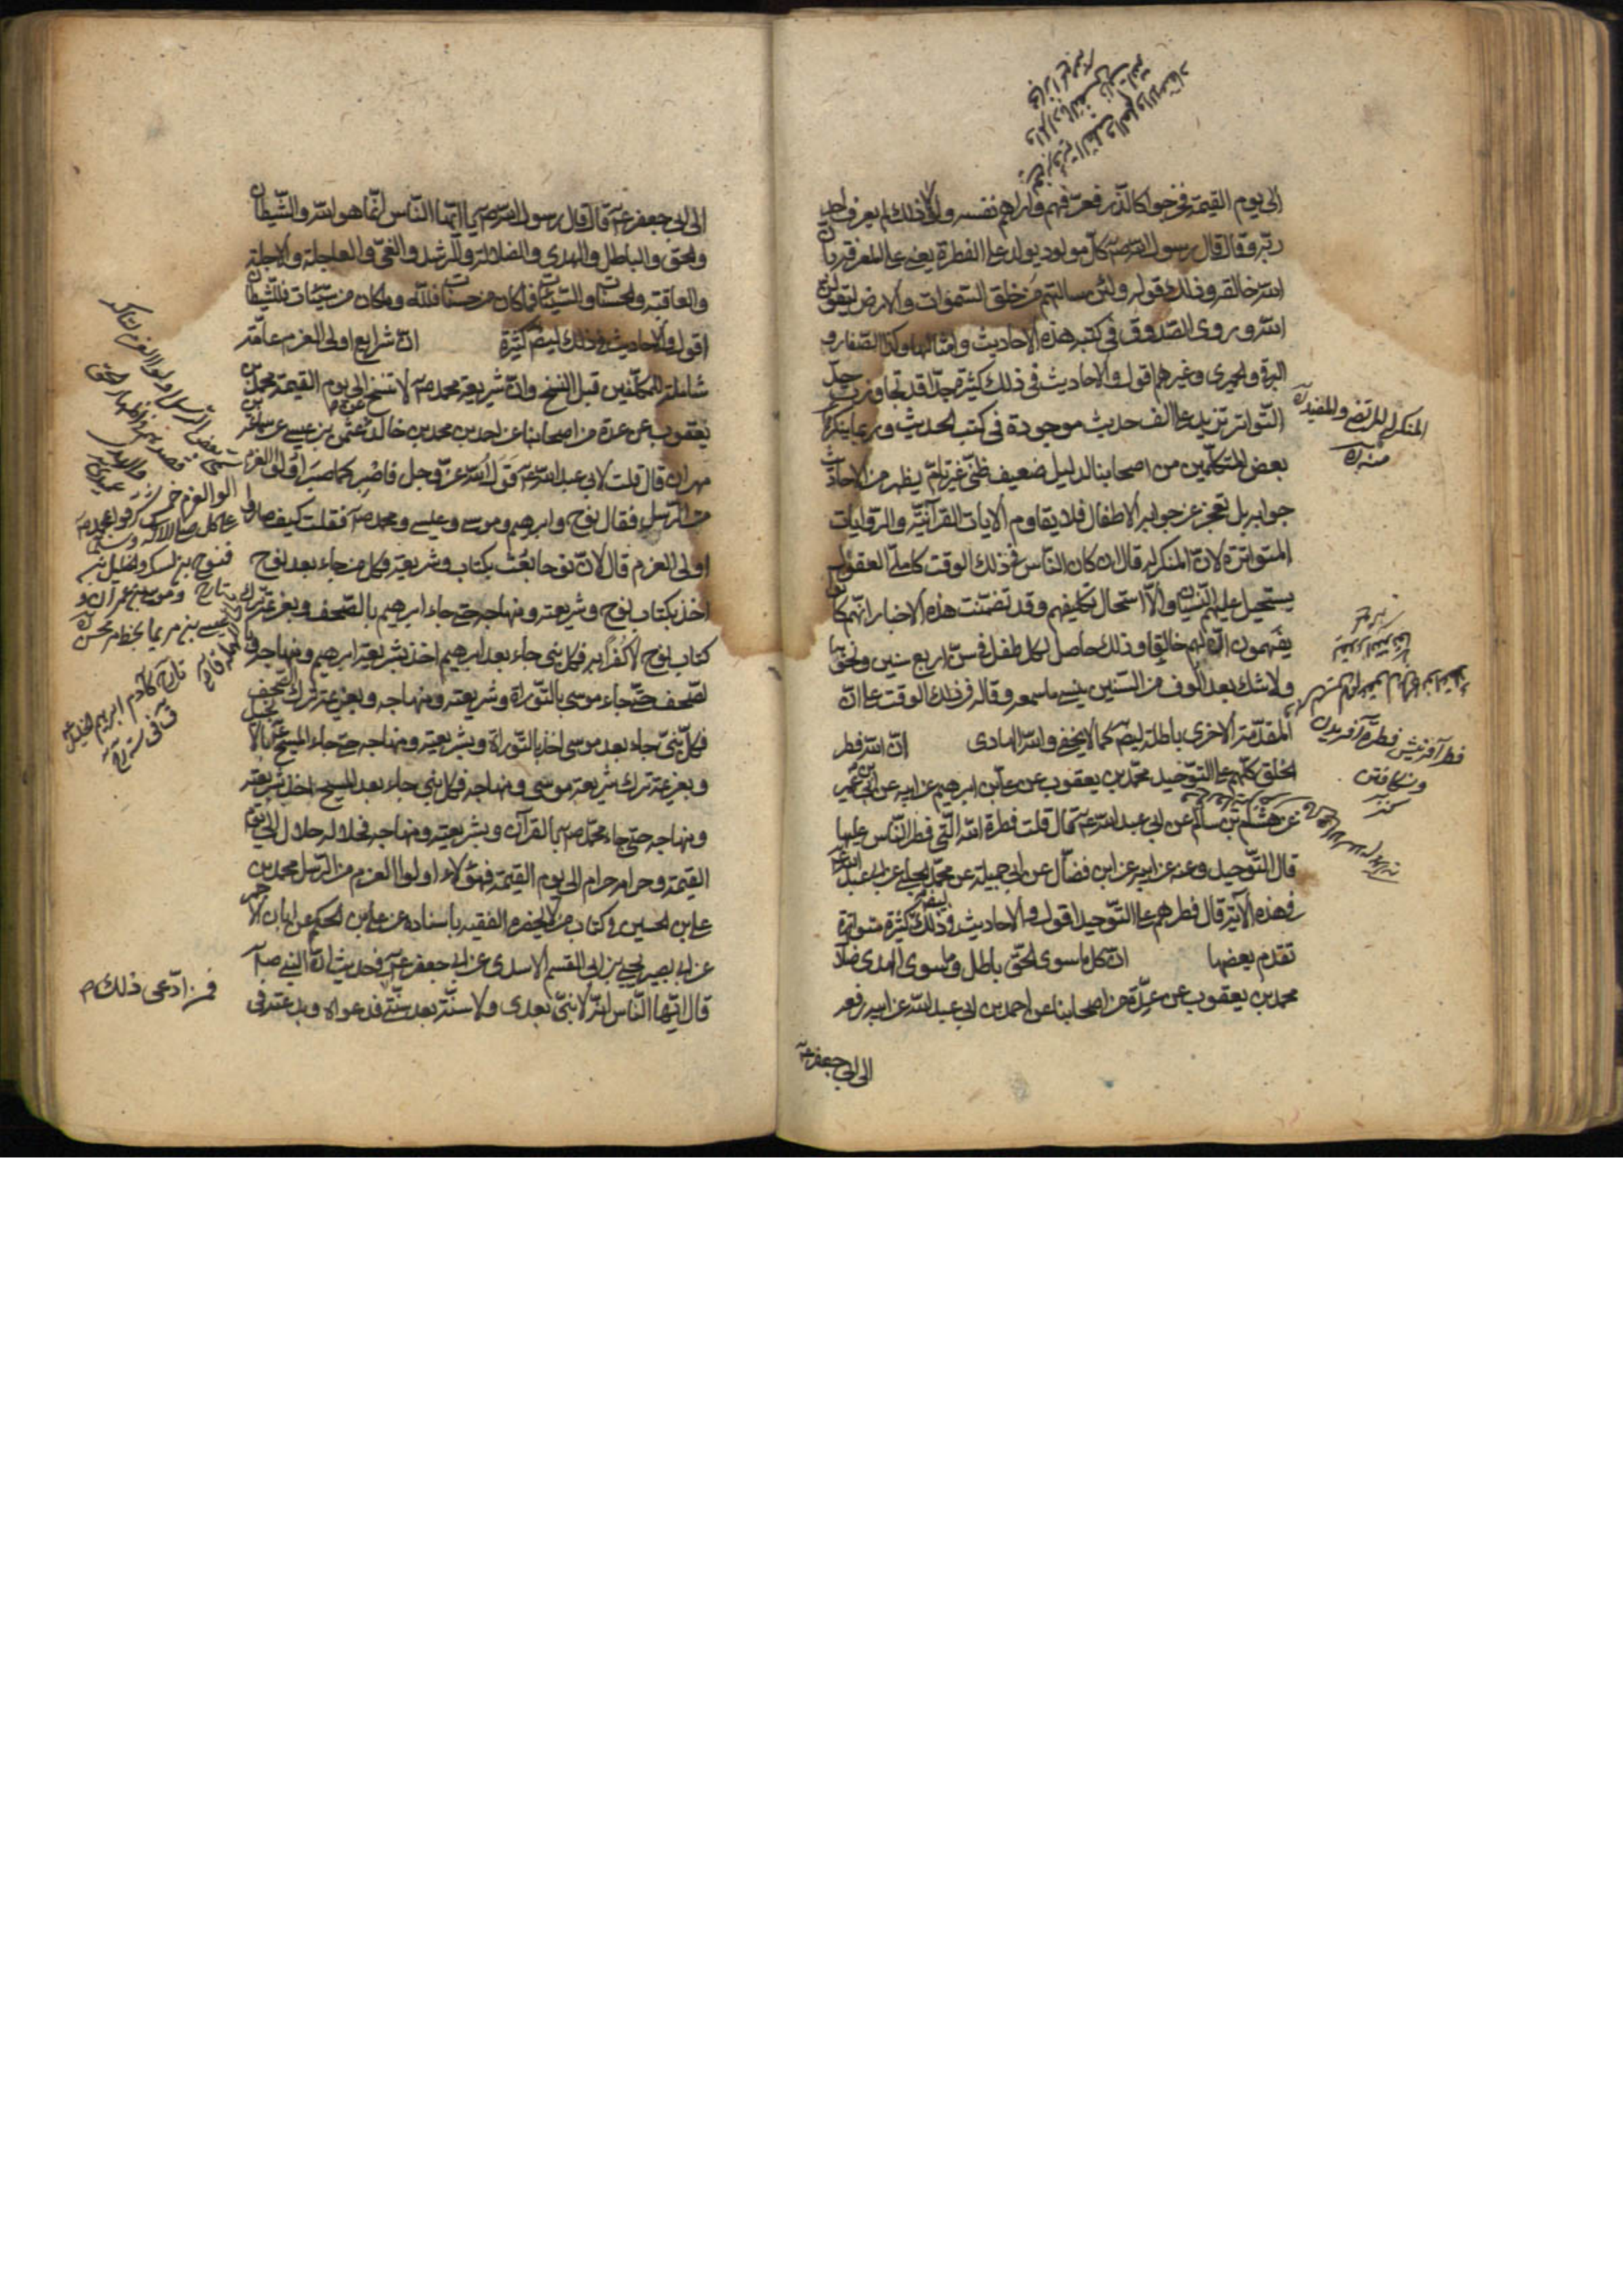 الى يوم القيمة فخرجوا كالذر فعرفهم واراهم نفسه ولولا ذلك لم يعرف احد
ربه وقال قال رسول الله صه كل مولود يولد على الفطرة يعنى على المعرفة بان
الله خالقه وذلك قوله ولئن سالتهم من خلق السموات والارض ليقولن
الله وروى الصدوق فى كتبه هذه الاحاديث وامثالها وكذا الصفار و
البرقى والحميرى وغيرهم اقول والاحاديث فى ذلك كثيرة جدا قد تجاوزت حد
التواتر تزيد على الف حديث موجودة فى كتب الحديث وربما ينكر
بعض المتكلمين من اصحابنا لدليل ضعيف ظنى غير تام يظهر من الاحاديث
جوابه بل تعجز عن جوابه الاطفال فلا يقاوم الايات القرآنية والروايات
المتواترة لان المنكر له قال ان كان الناس فى ذلك الوقت كاملى العقول
يستحيل عليهم النسيان والا استحال تكليفهم وقد تضمنت هذه الاخبار انهم كانوا
يفهمون ان لهم خالقا وذلك حاصل لكل طفل فى سن اربع سنين ونحوها
ولا شك بعد الوف من السنين ينسى ما سمعه وقاله فى ذلك الوقت على ان
المقدمة الاخرى باطلة ايضا كما لا يخفى والله الهادى ان الله فطر
الخلق كلهم على التوحيد محمد بن يعقوب عن على بن ابرهيم عن ابيه عن ابن ابى عمير
عن هشام بن سالم عن ابى عبد الله عه قال قلت فطرة الله التى فطر الناس عليها
قال التوحيد وعنه عن ابيه عن ابن فضال عن ابى جميلة عن محمد الحلبى عن ابى عبد الله عه
فى هذه الآية قال فطرهم على التوحيد اقول والاحاديث فى ذلك كثيرة متواترة
تقدم بعضها ان كل ما سوى الحق باطل وما سوى الهدى ضلال
محمد بن يعقوب عن عدة من اصحابنا عن احمد بن ابى عبد الله عن ابيه رفعه
الى ابى جعفر عه
المنكر له المرتضى والمفيد ره
منه ره
فطر آفرينش فطرة آفريدن
وشكافتن
كنز
الى ابى جعفر عه قال قال رسول الله صه يا ايها الناس انما هو الله والشيطان
والحق والباطل والهدى والضلالة والرشد والغى والعاجلة والاجلة
والعاقبة والحسنات والسيئات فما كان من حسنات فلله وما كان من سيئات فللشيطان
اقول والاحاديث فى ذلك ايضا كثيرة ان شرايع اولى العزم عامة
شاملة للمكلفين قبل النسخ وان شريعة محمد صه لا تنسخ الى يوم القيمة محمد بن
يعقوب عن عدة من اصحابنا عن احمد بن محمد بن خالد عن عثمن بن عيسى عن سماعة بن
مهران قال قلت لابى عبد الله عه قول الله عز وجل فاصبر كما صبر اولوا العزم
من الرسل فقال نوح وابرهيم وموسى وعيسى ومحمد صه فقلت كيف صاروا
اولى العزم قال لان نوحا بعث بكتاب وشريعة وكل من جاء بعد نوح
اخذ بكتاب نوح وشريعته ومنهاجه حتى جاء ابرهيم بالصحف وبعزيمة ترك
كتاب نوح لا كفرا به فكل نبى جاء بعد ابرهيم اخذ بشريعة ابرهيم ومنهاجه وبا
لصحف حتى جاء موسى بالتوراة وشريعته ومنهاجه وبعزيمة ترك الصحف
فكل نبى جاء بعد موسى اخذ بالتوراة وبشريعته ومنهاجه حتى جاء المسيح عه بالانجيل
وبعزيمة ترك شريعة موسى ومنهاجه فكل نبى جاء بعد المسيح اخذ شريعته
ومنهاجه حتى جاء محمد صه بالقرآن وبشريعته ومنهاجه فحلاله حلال الى يوم
القيمة وحرامه حرام الى يوم القيمة فهؤلاء اولوا العزم من الرسل محمد بن
على بن الحسين فى كتاب من لا يحضره الفقيه باسناده عن على بن الحكم عن ابان الاحمر
عن ابى بصير يحيى بن ابى القسم الاسدى عن ابى جعفر عه فى حديث ان النبى صه
قال ايها الناس انه لا نبى بعدى ولا سنة بعد سنتى فدعواه وبدعته فى
فمن ادعى ذلك م